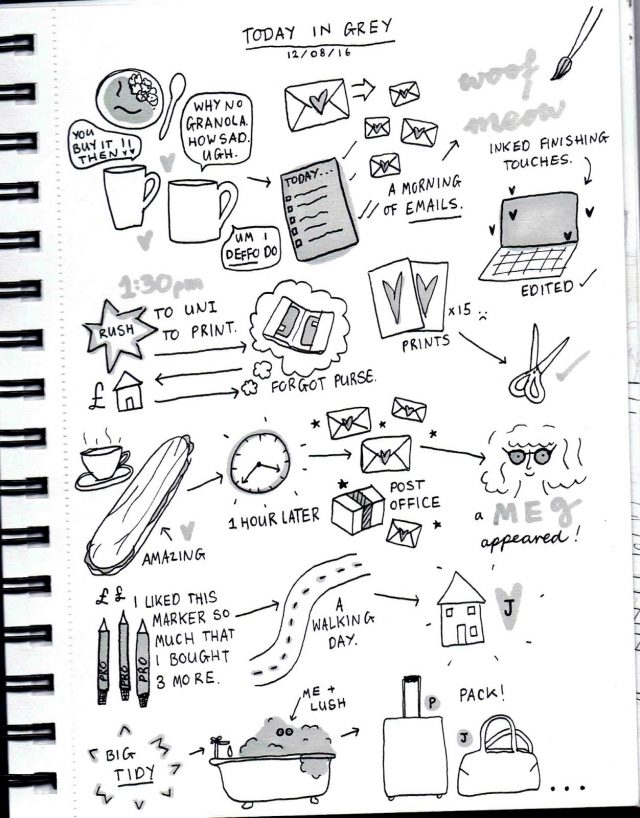 TODAY IN GREY
12/08/16
WHY NO
GRANOLA.
HOW SAD.
UGH.
YOU
BUY IT
THEN
UM I
DEFFO DO
TODAY...
A MORNING
OF EMAILS.
woof
meow
INKED FINISHING
TOUCHES.
EDITED
1:30pm
RUSH
TO UNI
TO PRINT.
£
FORGOT PURSE.
x15
PRINTS
AMAZING
1 HOUR LATER
POST
OFFICE
a MEG
appeared!
££
I LIKED THIS
MARKER SO
MUCH THAT
I BOUGHT
3 MORE.
PRO
PRO
PRO
A
WALKING
DAY.
J
BIG
TIDY
ME +
LUSH
P
PACK!
J
...